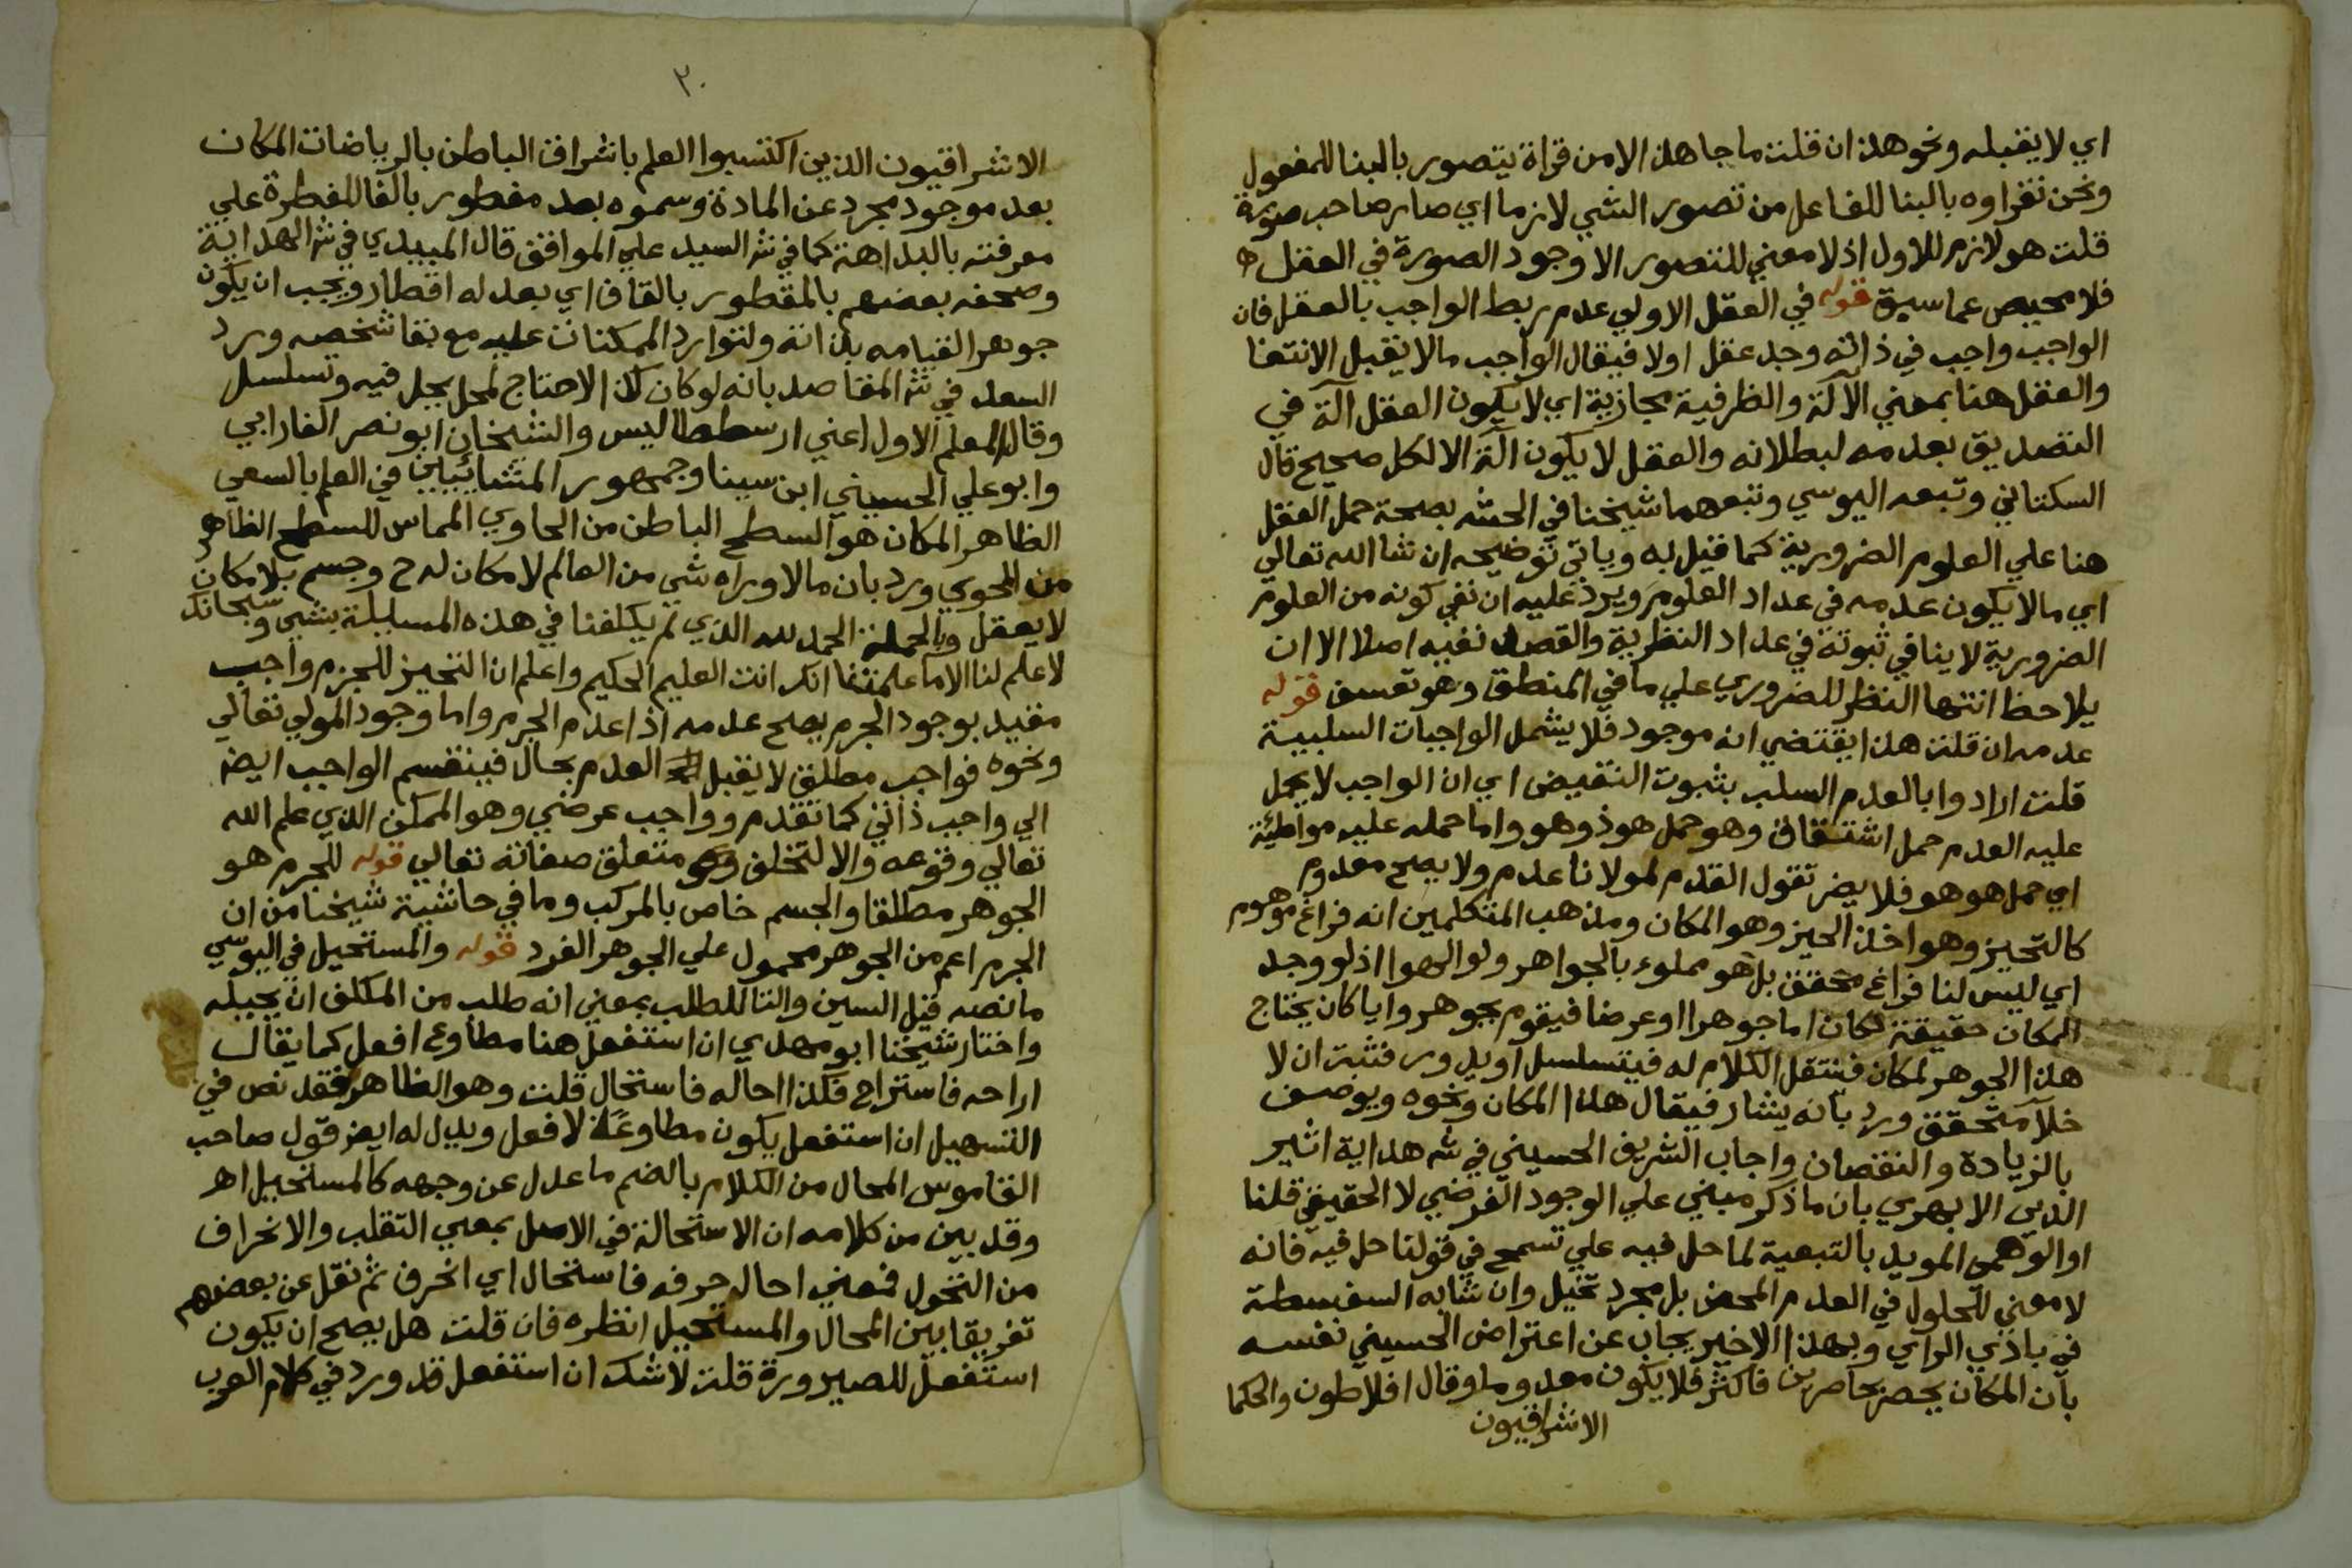 اي لا يقبله ونحو هذا ان قلت ما جا هذا الا من قراة يتصور بالبنا للمفعول
ونحن نقراوه بالبنا للفاعل من تصور الشي لازما اي صار صاحب صورة
قلت هو لازم للاول اذ لا معني للتصور الا وجود الصورة في العقل
فلا محيص عما سبق قوله في العقل الاولي عدم ربط الواجب بالعقل فان
الواجب واجب في ذاته وجد عقل اولا فيقال الواجب ما لا يقبل الانتفا
والعقل هنا بمعني الآلة والظرفية مجازية اي لا يكون العقل آلة في
التصديق بعدمه لبطلانه والعقل لا يكون آلة الا لكل صحيح قال
السكتاني وتبعه اليوسي وتبعهما شيخنا في الحشه بصحة حمل العقل
هنا علي العلوم الضرورية كما قيل به وياتي توضيحه ان شا الله تعالي
اي ما لا يكون عدمه في عداد العلوم ويرد عليه ان نفي كونه من العلوم
الضرورية لا ينافي ثبوته في عداد النظرية والقصد نفيه اصلا الا ان
يلاحظ انتها النظر للضروري علي ما في المنطق وهو تعسف قوله
عدمه ان قلت هذا يقتضي انه موجود فلا يشمل الواجبات السلبية
قلت ارادوا بالعدم السلب بثبوت النقيض اي ان الواجب لا يحمل
عليه العدم حمل اشتقاق وهو حمل هو ذو هو واما حمله عليه مواطئة
اي حمل هو هو فلا يضر تقول القدم لمولانا عدم ولا يصح معدوم
كالتحيز وهو اخذ الحيز وهو المكان ومذهب المتكلمين انه فراغ موهوم
اي ليس لنا فراغ محقق بل هو مملوء بالجواهر ولو الهوا اذ لو وجد
المكان حقيقة لكان اما جوهرا او عرضا فيقوم بجوهر وايا كان يحتاج
هذا الجوهر لمكان فننتقل الكلام له فيتسلسل او يدور فثبت ان لا
خلآ متحقق ورد بانه يشار فيقال هذا المكان ونحوه ويوصف
بالزيادة والنقصان واجاب الشريف الحسيني في شه هداية اثير
الدين الابهري بان ما ذكر مبني علي الوجود الفرضي لا الحقيقي قلنا
او الوهمي المويد بالتبعية لما حل فيه علي تسمح في قولنا حل فيه فانه
لا معني للحلول في العدم المحض بل مجرد تخيل وان شابه السفسطة
في بادي الراي وبهذا الاخير يجاب عن اعتراض الحسيني نفسه
بان المكان يحصر بحاصرين فاكثر فلا يكون معدوما وقال افلاطون والحكما
الاشراقيون
٣٠
الاشراقيون الذين اكتسبوا العلم باشراق الباطن بالرياضات المكان
بعد موجود مجرد عن المادة وسموه بعد مفطور بالفا للفطرة علي
معرفته بالبداهة كما في شه السيد علي المواقف قال الميبدي في شه الهداية
وصحفه بعضهم بالمقطور بالقاف اي بعد له اقطار ويجب ان يكون
جوهرا لقيامه بذاته ولتوارد الممكنات عليه مع بقا شخصه ورد
السعد في شه المقاصد بانه لو كان كذا لاحتاج لمحل يحل فيه وتسلسل
وقال المعلم الاول اعني ارسططاليس والشيخان ابو نصر الفارابي
وابو علي الحسيني ابن سينا وجمهور المشائيين في العلم بالسعي
الظاهر المكان هو السطح الباطن من الحاوي المماس للسطح الظاهر
من المحوي ورد بان ما لا وراه شي من العالم لا مكان له ح وجسم بلا مكان
لا يعقل وبالجملة الحمد لله الذي لم يكلفنا في هذه المسايلة بشي وسبحانك
لا علم لنا الا ما علمتنا انك انت العليم الحكيم واعلم ان التحيز للجرم واجب
مقيد بوجود الجرم يصح عدمه اذا عدم الجرم واما وجود المولي تعالي
ونحوه فواجب مطلق لا يقبل العدم بحال فينقسم الواجب ايضا
الي واجب ذاتي كما تقدم وواجب عرضي وهو الممكن الذي علم الله
تعالي وقوعه والا لتخلف وهو متعلق صفاته تعالي قوله للجرم هو
الجوهر مطلقا والجسم خاص بالمركب وما في حاشية شيخنا من ان
الجرم اعم من الجوهر محمول علي الجوهر الفرد قوله والمستحيل في اليوسي
ما نصه قيل السين والتا للطلب بمعني انه طلب من المكلف ان يحيله
واختار شيخنا ابو مهدي ان استفعل هنا مطاوع افعل كما يقال
اراحه فاستراح فكذا احاله فاستحال قلت وهو الظاهر فقد نص في
التسهيل ان استفعل يكون مطاوعة لافعل ويدل له ايضر قول صاحب
القاموس المحال من الكلام بالضم ما عدل عن وجهه كالمستحيل اهـ
وقد بين من كلامه ان الاستحالة في الاصل بمعني التقلب والانحراف
من التحول فمعني احاله حرفه فاستحال اي انحرف ثم نقل عن بعضهم
تفريقا بين المحال والمستحيل انظره فان قلت هل يصح ان يكون
استفعل للصيرورة قلت لا شك ان استفعل قد ورد في كلام العرب